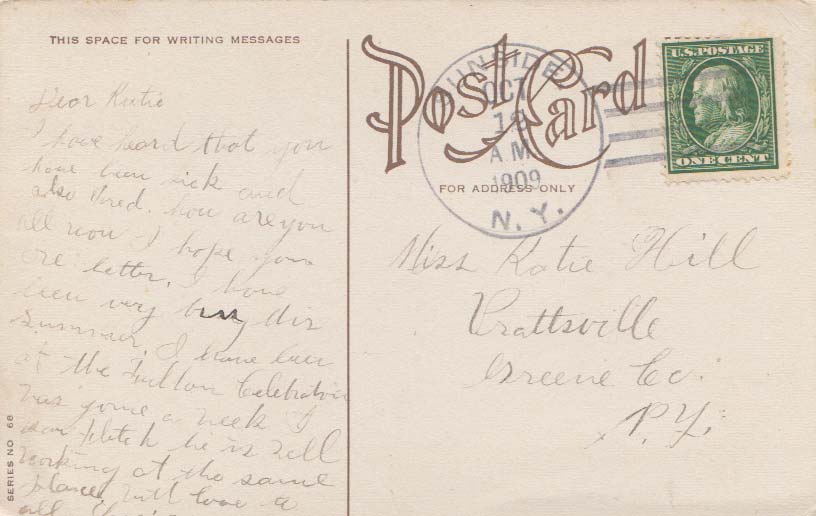 THIS SPACE FOR WRITING MESSAGES
Dear Katie
I have heard that you
have been sick and
also Fred. how are you
all now I hope your
are letter. I have
been very busy dis
Summer. I have been
at the Fulton Celebration
was gone a week I
saw he is well
working at the same
place, with love to
all
SERIES NO 68
Post Card
FOR ADDRESS ONLY
SUNSIDE
OCT
A M
1909
N. Y.
U.S. POSTAGE
ONE CENT
Miss Katie Hill
Prattsville
Greene Co.
N.Y.